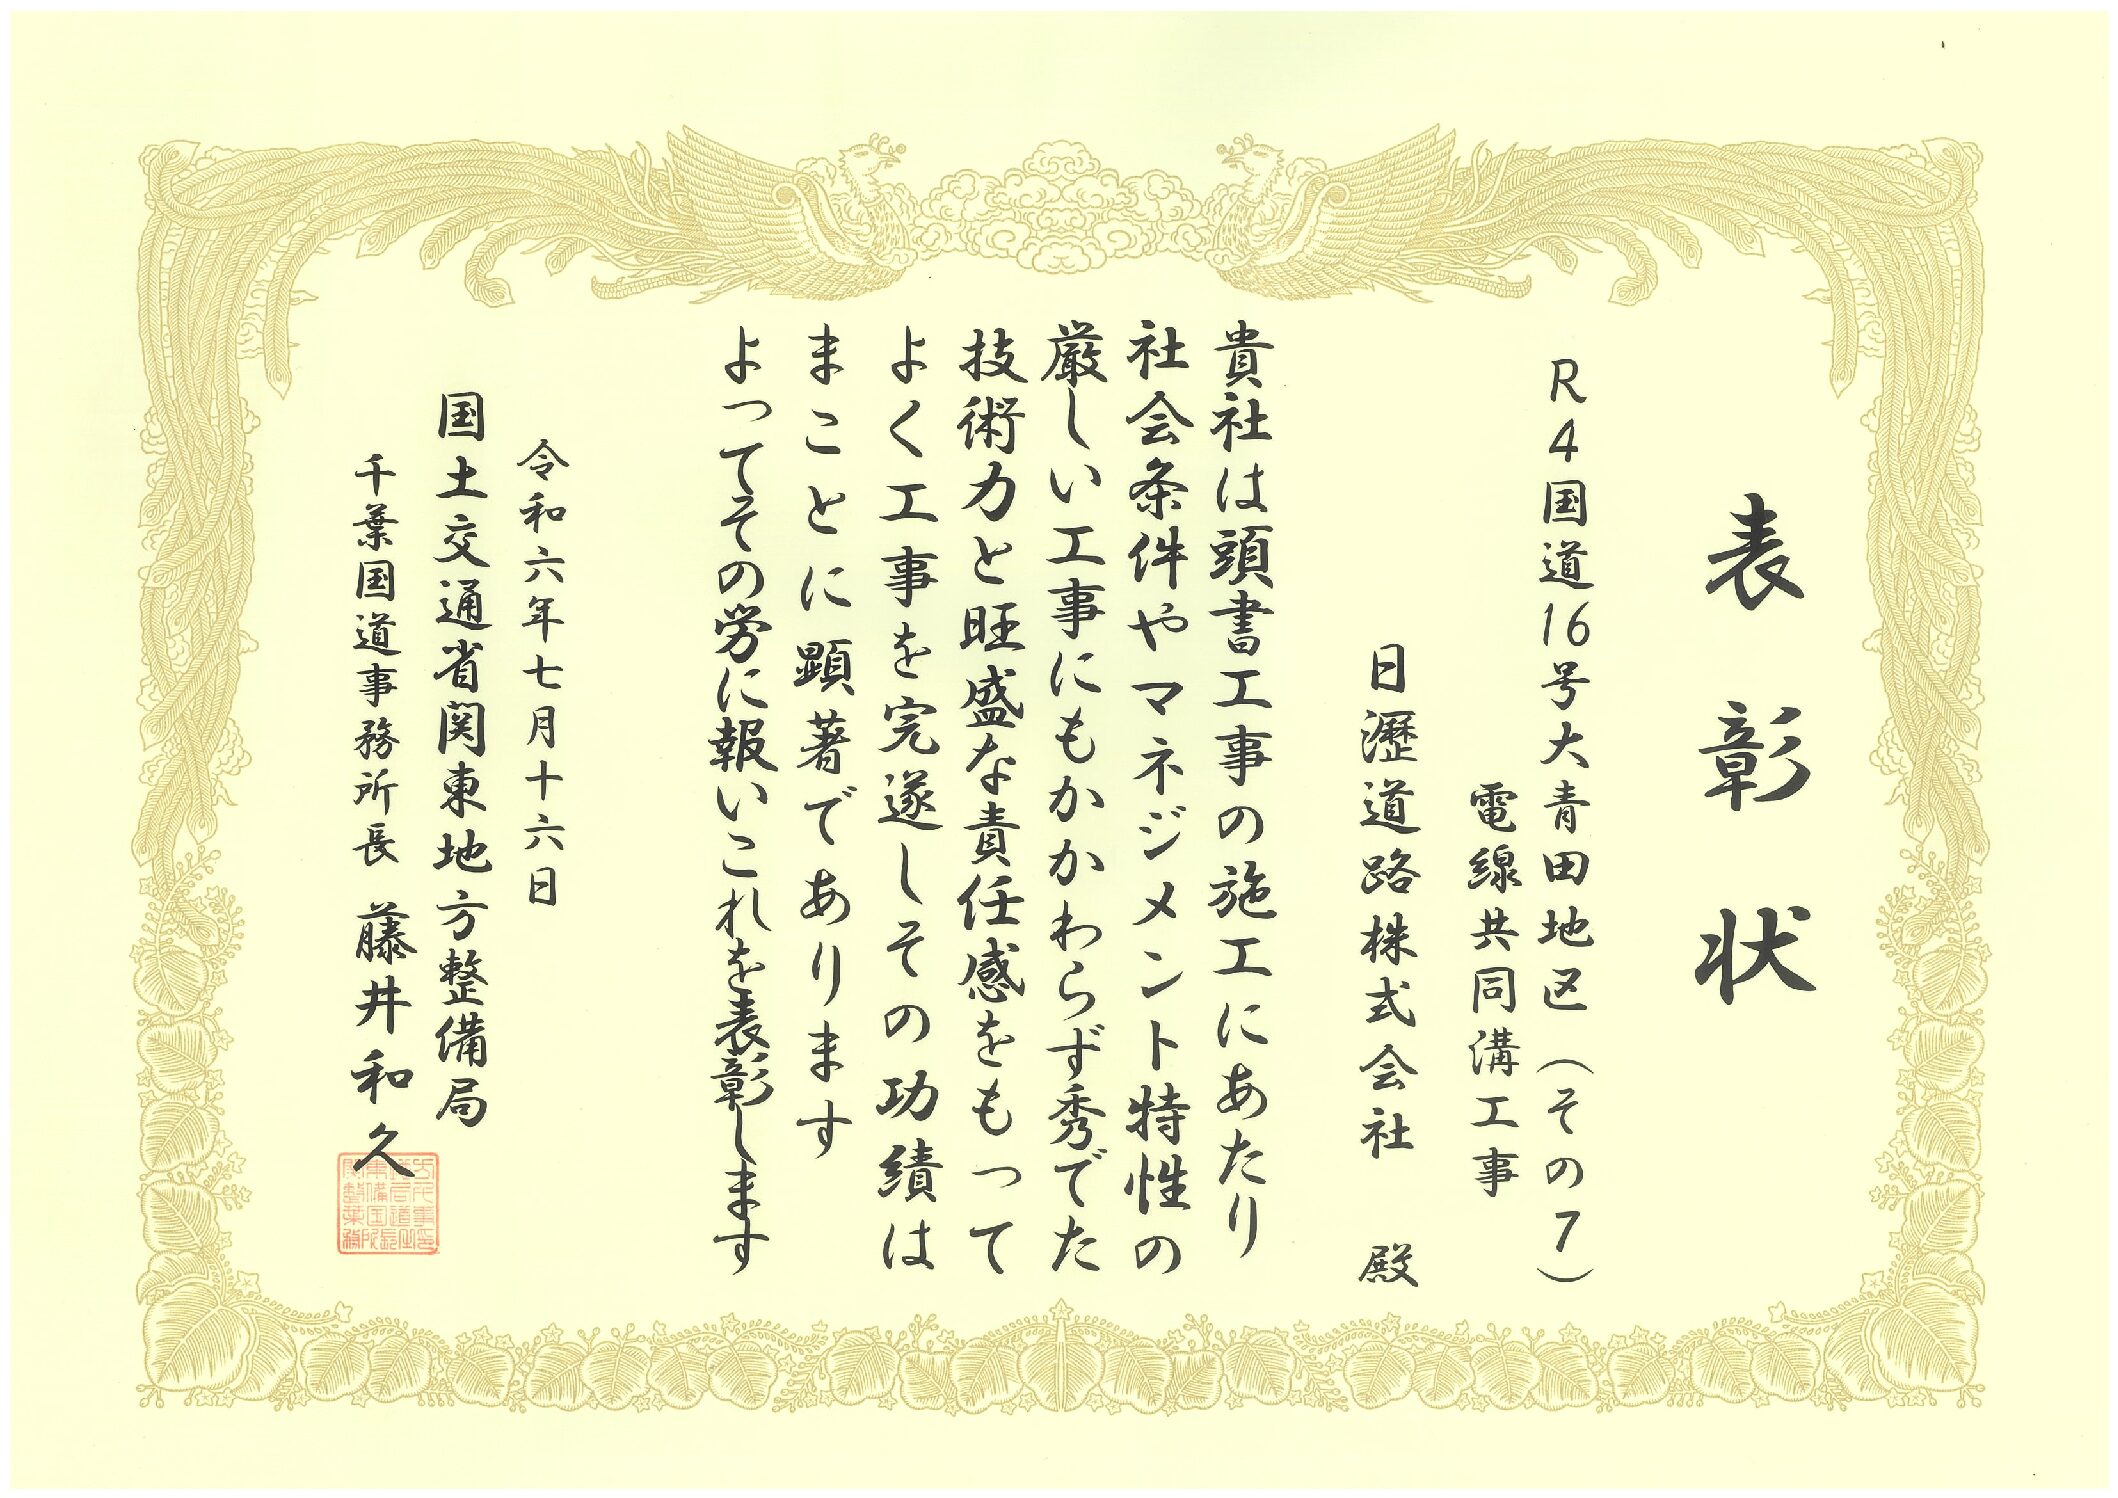 表彰状
R4国道16号大青田地区（その7）
電線共同溝工事
日瀝道路株式会社　殿
貴社は頭書工事の施工にあたり
社会条件やマネジメント特性の
厳しい工事にもかかわらず秀でた
技術力と旺盛な責任感をもって
よく工事を完遂しその功績は
まことに顕著であります
よってその労に報いこれを表彰します
令和六年七月十六日
国土交通省関東地方整備局
千葉国道事務所長　藤井和久